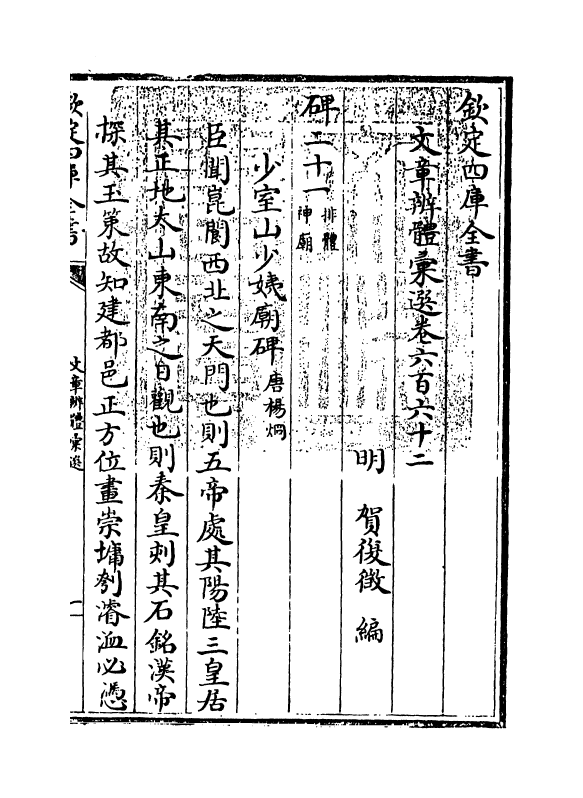 欽定四庫全書
文章辨體彙選卷六百六十二
明 賀復徵 編
碑二十一排體神廟
少室山少姨廟碑唐楊烱
臣聞崑閬西北之天門也則五帝處其陽陸三皇居
其正地泰山東南之日觀也則秦皇刻其石銘漢帝
探其玉策故知建都邑正方位畫崇墉刳濬洫必憑
欽定四庫全書
文章辨體彙選
一